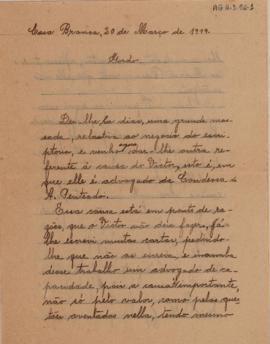 AG II.3.96-1
Casa Branca, 20 de Março de 1919.
Dei-lhe, ha dias, uma grande mas-
sada, relativa ao negocio do escri-
ptorio, e venho, agora, dar-lhe outra
referente á causa do Victor, isto é, em
que elle é advogado da Condessa de
A. Penteado.
Essa causa está em ponto de ra-
zões, que o Victor não deve fazer, já
lhe escrevi muitas cartas, pedindo-
lhe que não as escreva, e incumba
desse trabalho um advogado de ca-
pacidade, pois a causa é importante,
não só pelo valor, como pelas ques-
tões aventadas nella, tendo mesmo